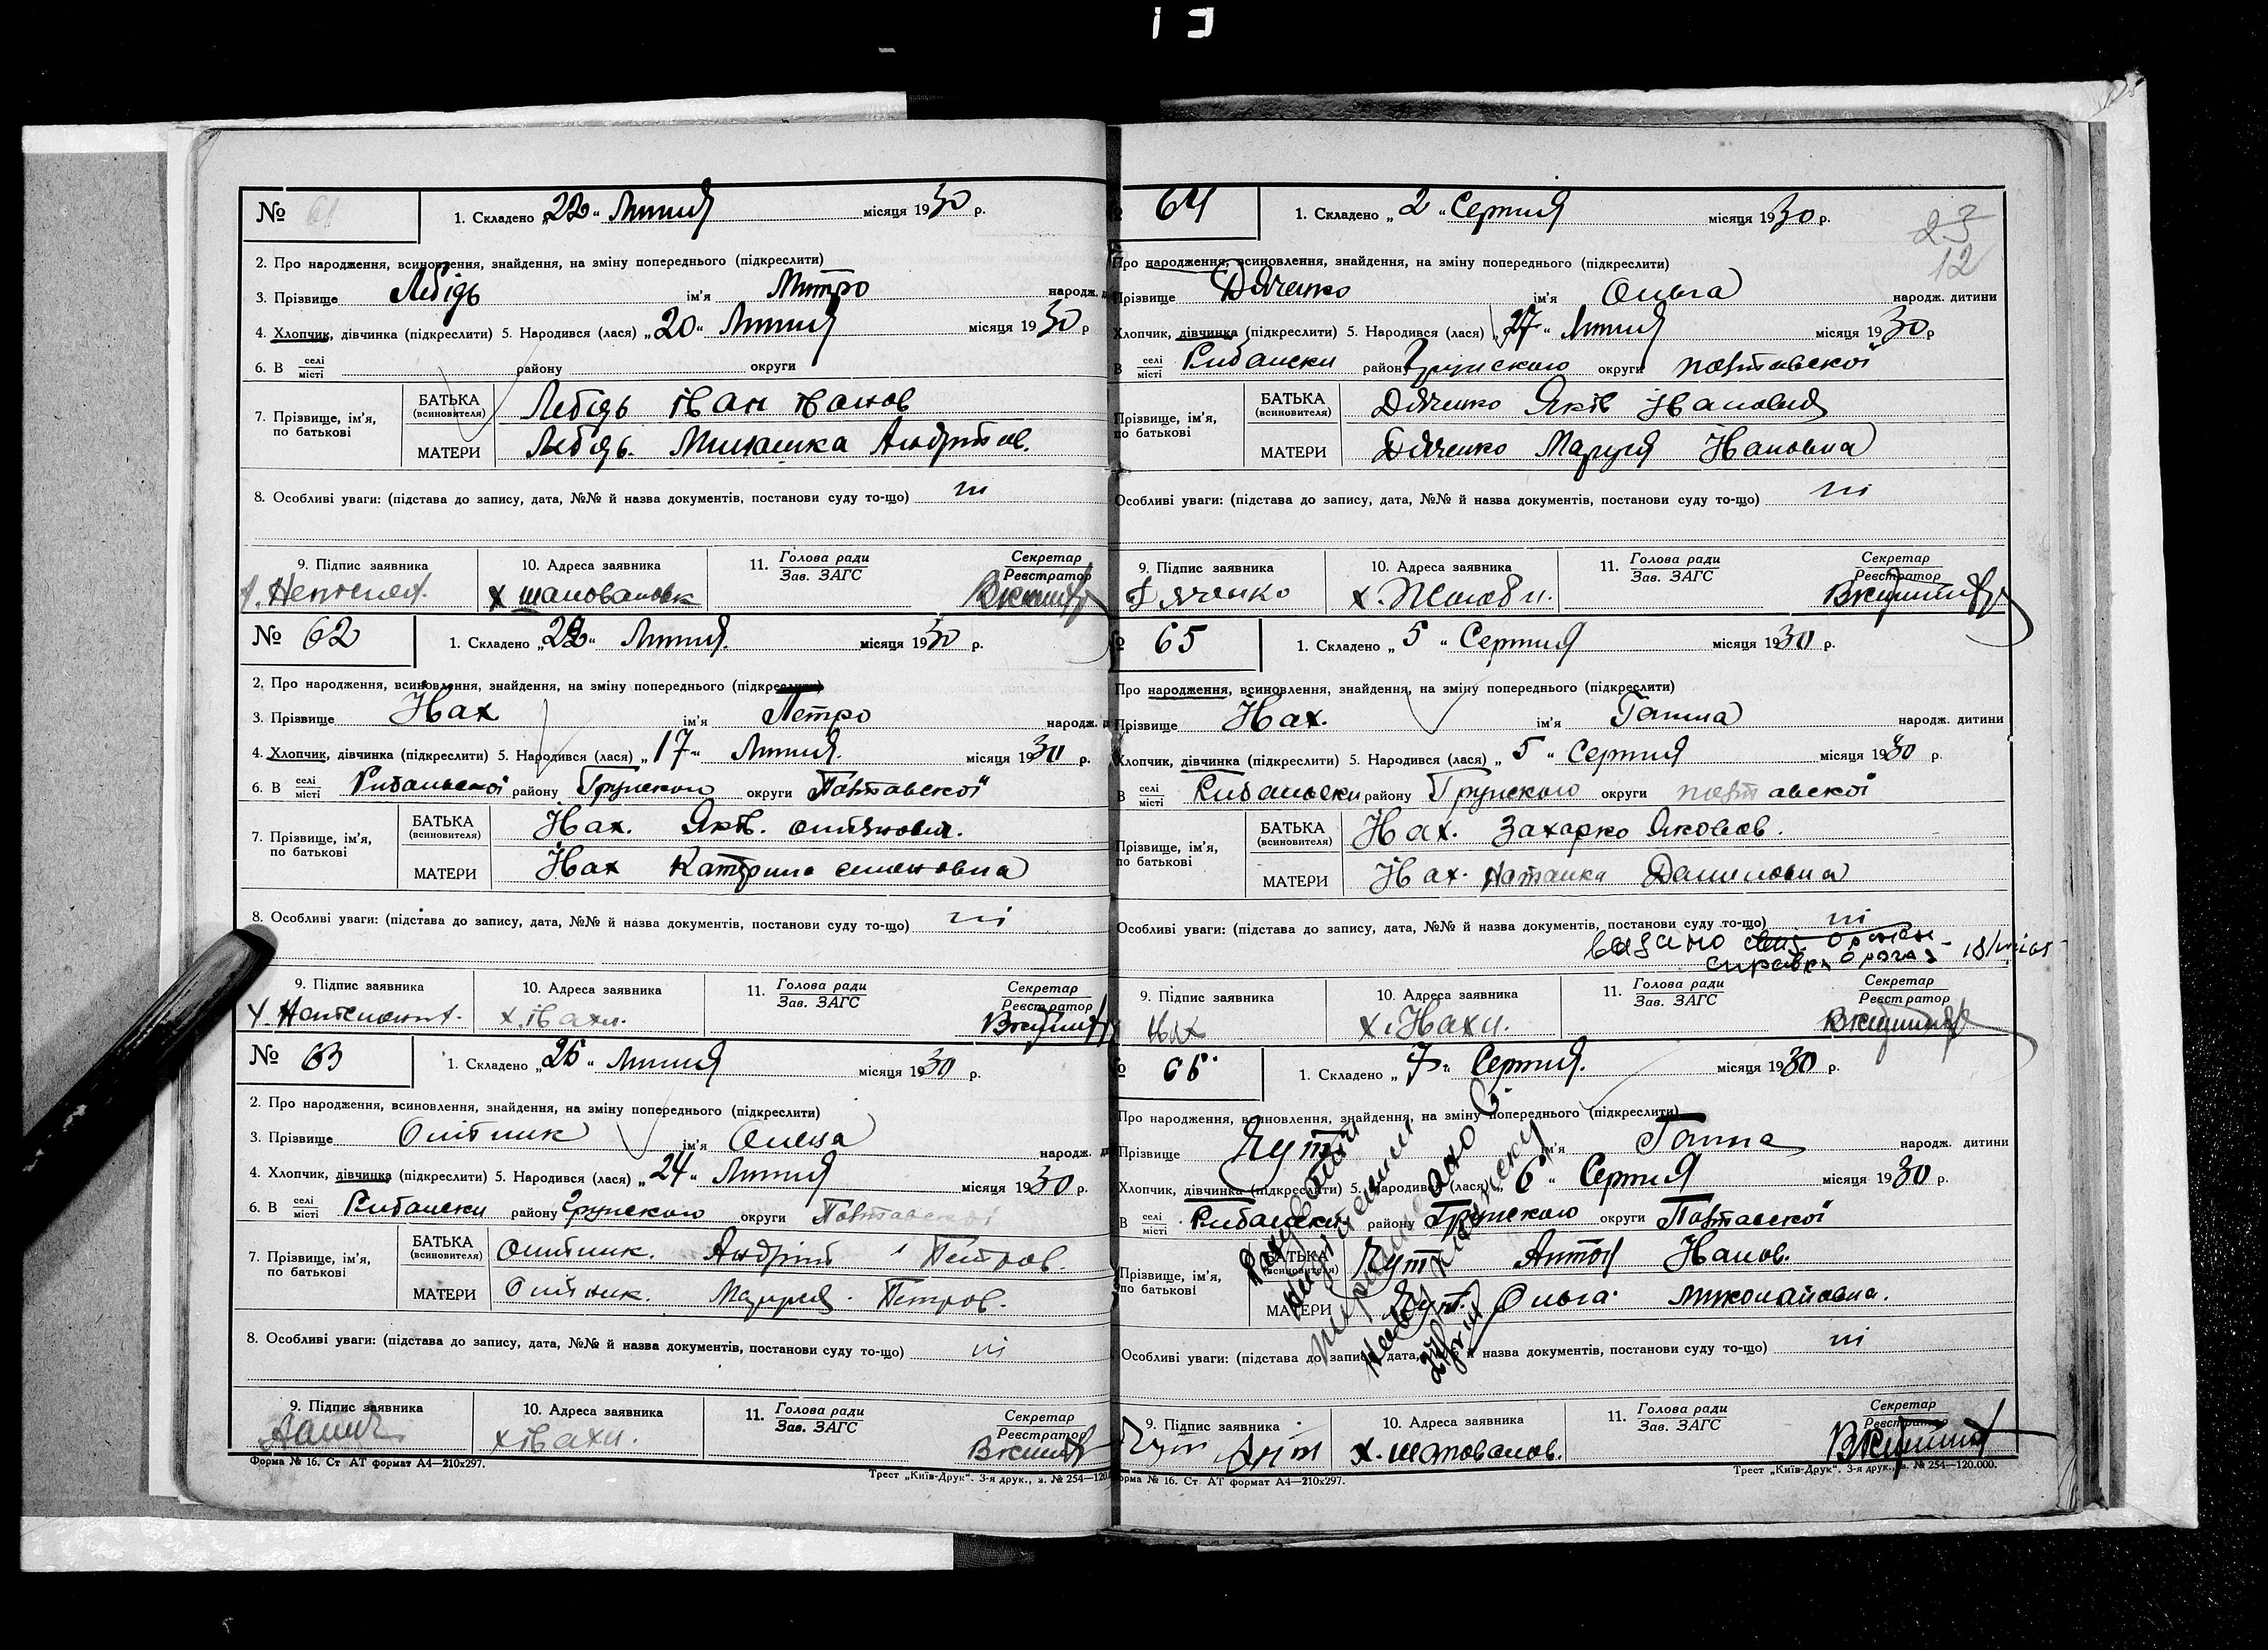 № 61 1. Складено „22“ Липня місяця 1930 р.
2. Про народження, всиновлення, знайдення, на зміну попереднього (підкреслити)
3. Прізвище Лебідь ім'я Митро народж.
4. Хлопчик, дівчинка (підкреслити) 5. Народився (лася) „20“ Липня місяця 1930 р
6. В селі місті району округи
7. Прізвище, ім'я, по батькові
БАТЬКА (всиновителя) Лебідь Іван Іванов
МАТЕРИ Лебідь. Андріїв.
8. Особливі уваги: (підстава до запису, дата, №№ й назва документів, постанови суду то-що) ні
9. Підпис заявника 10. Адреса заявника 11. Голова ради Зав. ЗАГС Секретар Реєстратор
х шаповаловк
№ 62 1. Складено „22“ Липня. місяця 1930 р.
2. Про народження, всиновлення, знайдення, на зміну попереднього (підкреслити)
3. Прізвище Івах ім'я Петро народж.
4. Хлопчик, дівчинка (підкреслити) 5. Народився (лася) „17“ Липня. місяця 1930 р.
6. В селі місті Рибальскої району Грунского округи Полтавскої
7. Прізвище, ім'я, по батькові
БАТЬКА (всиновителя) Івах. Яків.
МАТЕРИ Івах Катерина семеновна
8. Особливі уваги: (підстава до запису, дата, №№ й назва документів, постанови суду то-що) ні
9. Підпис заявника 10. Адреса заявника 11. Голова ради Зав. ЗАГС Секретар Реєстратор
х. Івахи.
№ 63 1. Складено „25“ Липня місяця 1930 р.
2. Про народження, всиновлення, знайдення, на зміну попереднього (підкреслити)
3. Прізвище Олійник ім'я Олена народж.
4. Хлопчик, дівчинка (підкреслити) 5. Народився (лася) „24“ Липня місяця 1930 р.
6. В селі місті Рибальски району Грунского округи Полтавскої
7. Прізвище, ім'я, по батькові
БАТЬКА (всиновителя) Олійник. Андрій Петров.
МАТЕРИ Олійник. Маруся. Петров.
8. Особливі уваги: (підстава до запису, дата, №№ й назва документів, постанови суду то-що) ні
9. Підпис заявника 10. Адреса заявника 11. Голова ради Зав. ЗАГС Секретар Реєстратор
х Івахи.
Форма № 16. Ст АТ формат А4—210x297. Трест „Київ-Друк“. 3-я друк., з. № 254—120.0
64 1. Складено „2“ Серпня місяця 1930 р.
23
12
Про народження, всиновлення, знайдення, на зміну попереднього (підкреслити)
Прізвище Дяченко ім'я Ольга народж. дитини
Хлопчик, дівчинка (підкреслити) 5. Народився (лася) „27“ Липня місяця 1930 р
В селі місті Рибальски району Грунского округи полтавскої
Прізвище, ім'я, по батькові
БАТЬКА (всиновителя) Дяченко Яків Івановия
МАТЕРИ Дяченко Маруся Івановна
Особливі уваги: (підстава до запису, дата, №№ й назва документів, постанови суду то-що) ні
9. Підпис заявника 10. Адреса заявника 11. Голова ради Зав. ЗАГС Секретар Реєстратор
Дяченко
65 1. Складено „5“ Серпня місяця 1930 р.
Про народження, всиновлення, знайдення, на зміну попереднього (підкреслити)
Прізвище Івах. ім'я Ганна народж. дитини
Хлопчик, дівчинка (підкреслити) 5. Народився (лася) „5“ Серпня місяця 1930 р.
В селі місті Рибальски району Грунского округи полтавскої
Прізвище, ім'я, по батькові
БАТЬКА (всиновителя) Івах. Захарко Яковов.
МАТЕРИ Івах. Наталка Даниловна
Особливі уваги: (підстава до запису, дата, №№ й назва документів, постанови суду то-що) ні
9. Підпис заявника 10. Адреса заявника 11. Голова ради Зав. ЗАГС Секретар Реєстратор
Івах х. Івахи.
66. 1. Складено „7“ Серпня. місяця 1930 р.
Про народження, всиновлення, знайдення, на зміну попереднього (підкреслити)
Прізвище Кут ім'я Ганна народж. дитини
Хлопчик, дівчинка (підкреслити) 5. Народився (лася) „6“ Серпня місяця 1930 р.
В селі місті Рибальски району Грунского округи Полтавскої
Прізвище, ім'я, по батькові
БАТЬКА (всиновителя) Кут Антон Іванов.
МАТЕРИ Кут. Ольга. миколайовна.
Особливі уваги: (підстава до запису, дата, №№ й назва документів, постанови суду то-що) ні
9. Підпис заявника 10. Адреса заявника 11. Голова ради Зав. ЗАГС Секретар Реєстратор
х. шаповалов.
Форма № 16. Ст АТ формат А4—210x297. Трест „Київ-Друк“. 3-я друк., з. № 254—120.000.